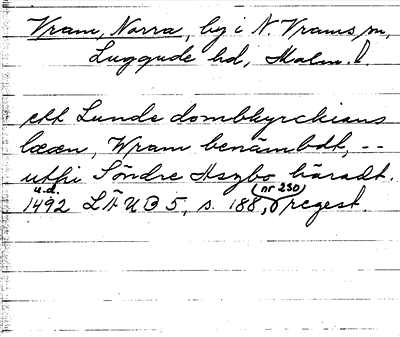 Vram, Norra, by i N. Vrams sn,
Luggude hd, Malm. l.
ett Lunde dombkyrckians
læen, Wram benämbdt, --
uthi Söndre Aszbo häradt.
u.d. (nr 250)
1492 LÄU B 5, s. 188, regest.